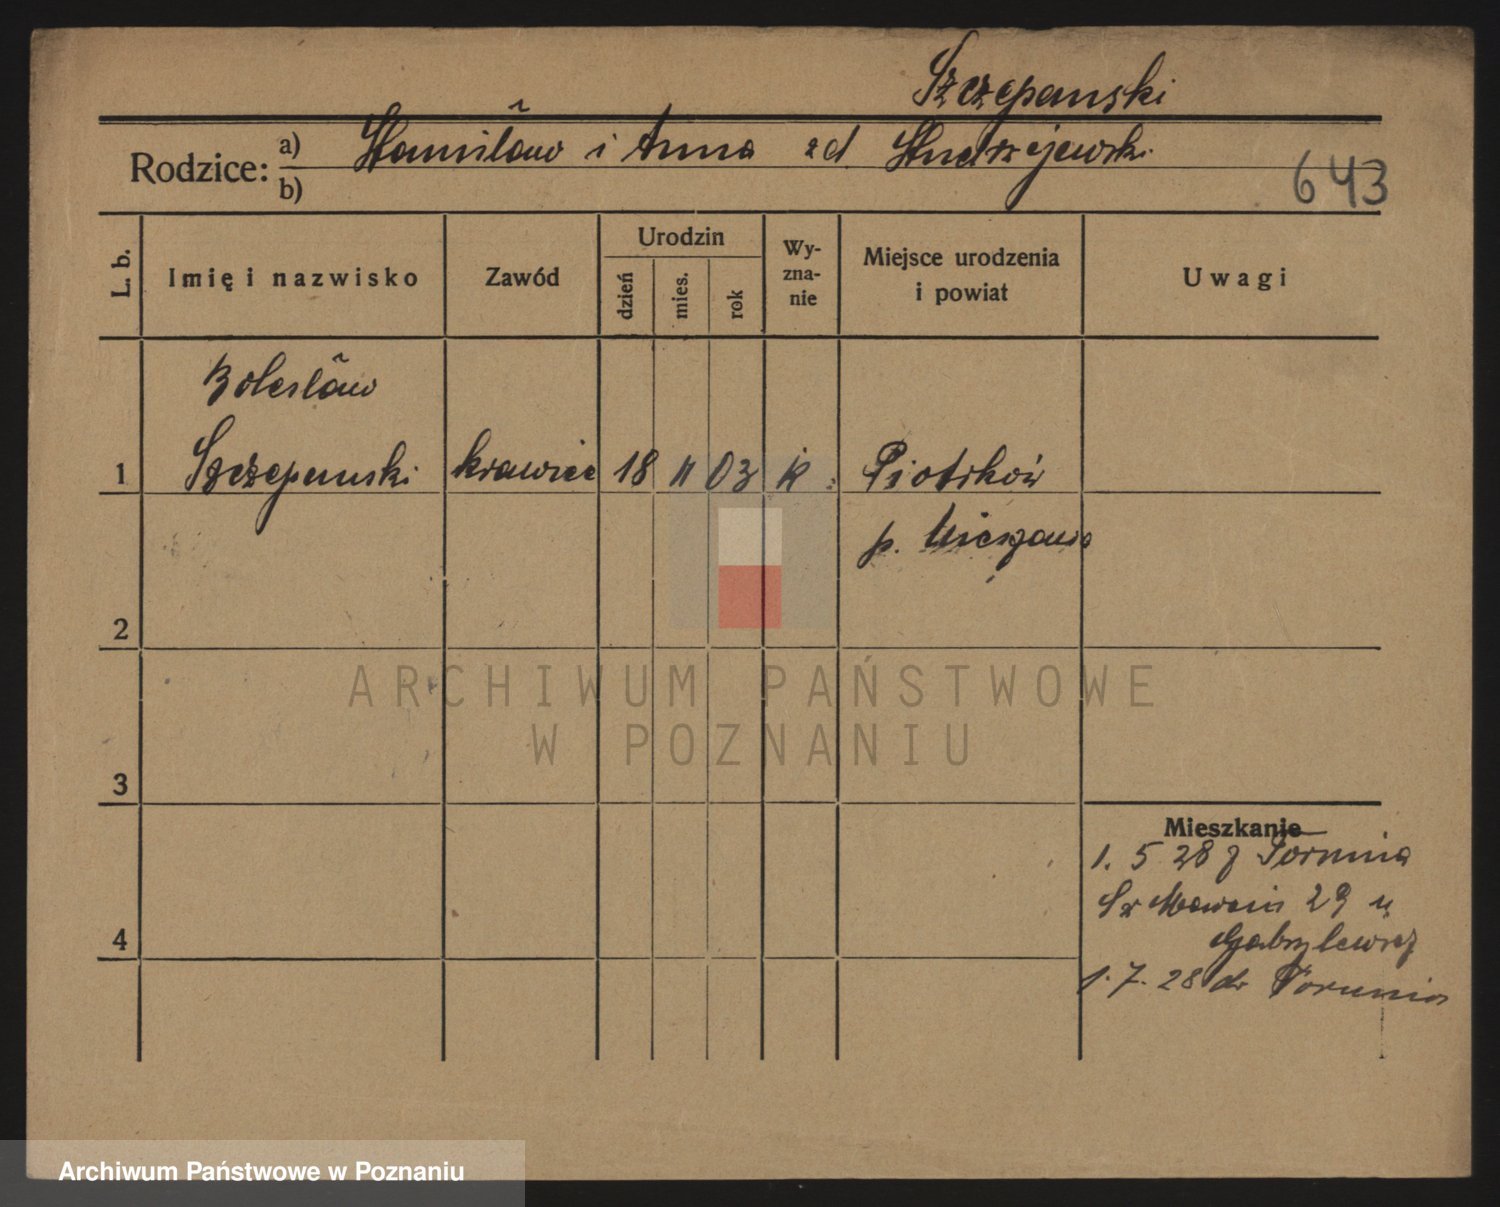 Szczepanski
Rodzice: a) Stanisław i Anna zd Andrzejewski
b)
643
L. b. Imię i nazwisko Zawód Urodzin dzień mies. rok Wy-zna-nie Miejsce urodzenia i powiat Uwagi
Bolesław
1 Szczepanski krawiec 18 11 03 k. Piotrków
p. Nieszawa
2
ARCHIWUM PAŃSTWOWE
W POZNANIU
3
Mieszkanie
1. 5 28 z Torunia
Św Marcin 29 u
4 Gabrylewicz
1. 7. 28 do Torunia
Archiwum Państwowe w Poznaniu